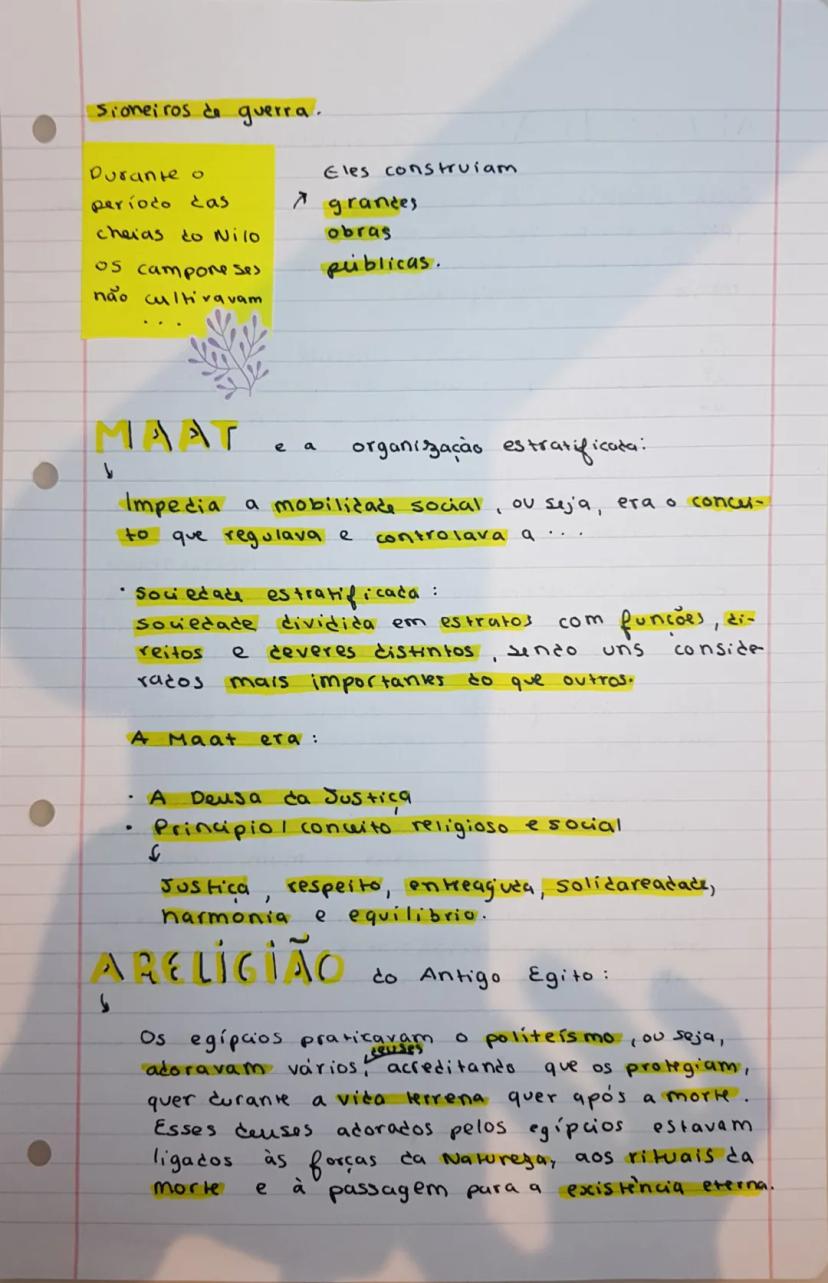 sioneiros de guerra.
Durante o
período das
cheias do Nilo
os camponeses
não cultivavam
...
Eles construiam
↗ grandes
obras
públicas.
MAAT e a organização estratificada:
↓
Impedia a mobilidade social, ou seja, era o concei-
to que regulava e controlava a ...
· Sociedade estratificada:
sociedade dividida em estratos com funções, di-
reitos e deveres distintos, sendo uns conside
rados mais importantes do que outros.
A Maat era:
· A Deusa da Justiça
· Princípio/conceito religioso e social
↓
Justiça, respeito, entreajuda, solidareadade,
harmonia e equilíbrio.
A RELIGIÃO do Antigo Egito:
↓
Os egípcios praticavam o politeísmo, ou seja,
deuses
adoravam vários, acreditando que os protegiam,
quer durante a vida terrena quer após a morte.
Esses deuses adorados pelos egípcios estavam
ligados às forças da Natureza, aos rituais da
morte e à passagem para a existência eterna.